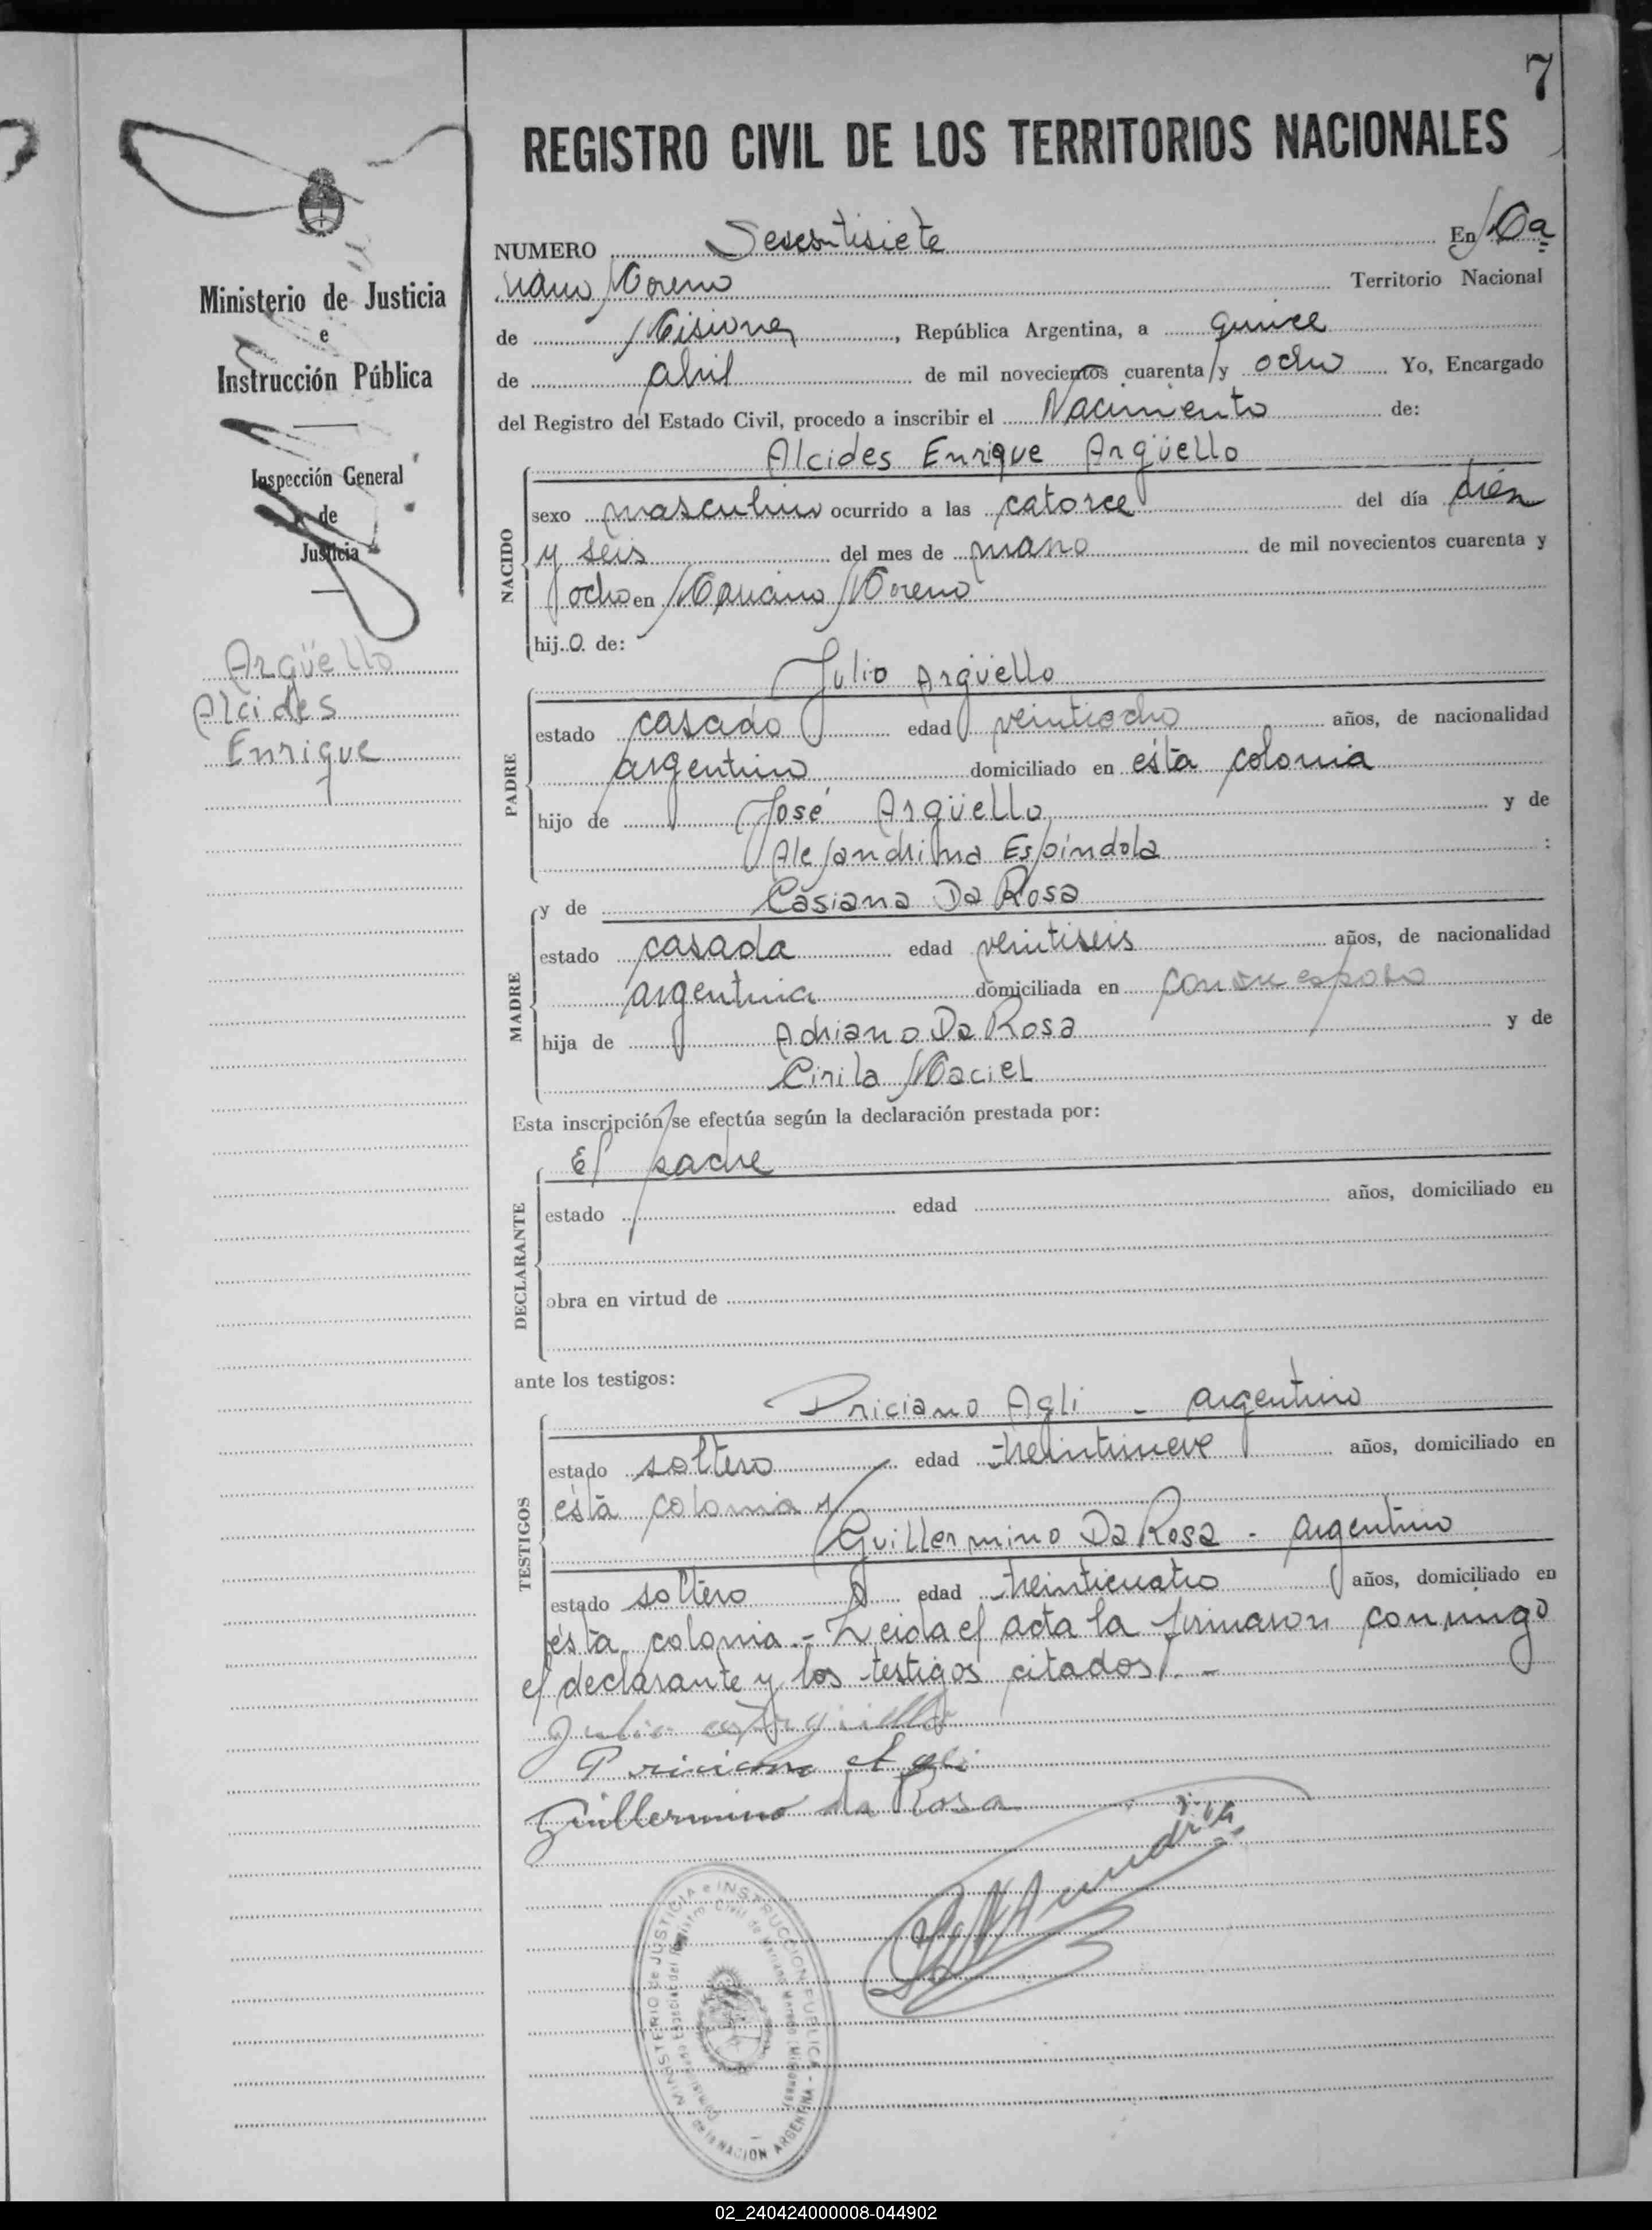 7
REGISTRO CIVIL DE LOS TERRITORIOS NACIONALES
NUMERO Sesentisiete En Ma
riano Moreno Territorio Nacional
de Misiones, República Argentina, a quince
de abril de mil novecientos cuarenta y ocho Yo, Encargado
del Registro del Estado Civil, procedo a inscribir el Nacimiento de:
Ministerio de Justicia
e
Instrucción Pública
Inspección General
de
Justicia
Argüello
Alcides
Enrique
NACIDO
Alcides Enrique Argüello
sexo masculino ocurrido a las catorce del día diez
y seis del mes de marzo de mil novecientos cuarenta y
ocho en Mariano Moreno
hij.o. de:
PADRE
Julio Argüello
estado casado edad veintiocho años, de nacionalidad
argentino domiciliado en ésta colonia
hijo de José Argüello y de
Alejandrina Espíndola :
y de Casiana Da Rosa
MADRE
estado casada edad veintiseis años, de nacionalidad
argentina domiciliada en con su esposo
hija de Adriano Da Rosa y de
Cirila Maciel
Esta inscripción se efectúa según la declaración prestada por:
DECLARANTE
El padre
estado edad años, domiciliado en
obra en virtud de
ante los testigos:
TESTIGOS
Priciano Agli - argentino
estado soltero edad treintinueve años, domiciliado en
ésta colonia y
Guillermino Da Rosa - argentino
estado soltero edad treinticuatro años, domiciliado en
ésta colonia.- Leida el acta la firmaron conmigo
el declarante y los testigos citados.-
Julio Argüello
Priciano Agli
Guillermino da Rosa
MINISTERIO de JUSTICIA e INSTRUCCION PUBLICA - de la NACION ARGENTINA
Registro Civil de Mariano Moreno (Misiones)
02_240424000008-044902